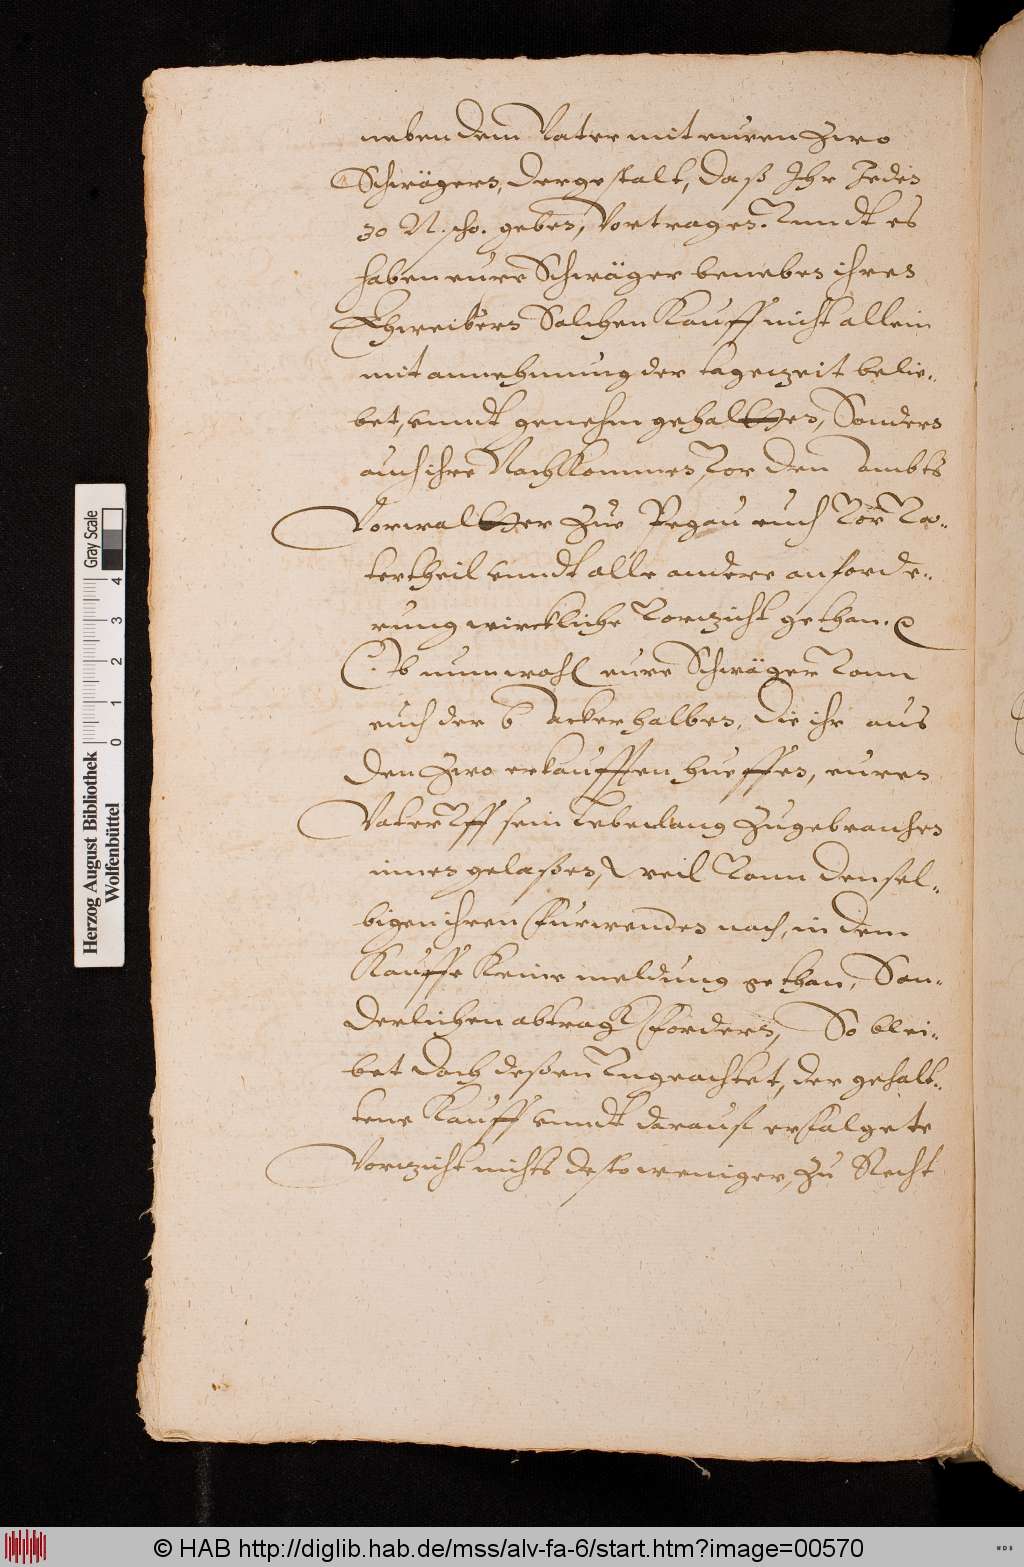 neben dem Vater mit euren Zwo
Schwägern, dergestalt, daß Ihr Jedes
30 N. scho. geben, Vortragen. Unndt es
haben eure Schwäger beneben ihren
Eheweibern Solchen Kauff nicht allein
mit annehmung der tagezeit belie-
bet, unndt genehm gehaltten, Sondern
auch ihre Nachkommen, Vor den ambts
Vorwaltter Zue Pegau euch Vor Va-
tertheil unndt alle andere anforde-
rung wirckliche Vorzicht gethan.
Ob nun wohl eure Schwäger Vonn
euch der 6 Acker halben, die ihr aus
den Zwo erkaufften hueffen, euren
Vater Uff sein Lebenlang Zugebrauchen
innen gelaßen, weil Vonn densel-
bigen ihren fürwenden nach, in dem
Kauffe Keine meldung gethan, Son-
derlichen abtragk fordern, So blei-
bet doch deßen Ungeachtet, der gehalt-
tene Kauff unndt darauf erfolgete
Vorzicht nichts desto weniger, Zu Recht
Herzog August Bibliothek
Wolfenbüttel
Gray Scale
0 1 2 3 4
© HAB http://diglib.hab.de/mss/alv-fa-6/start.htm?image=00570
WDB